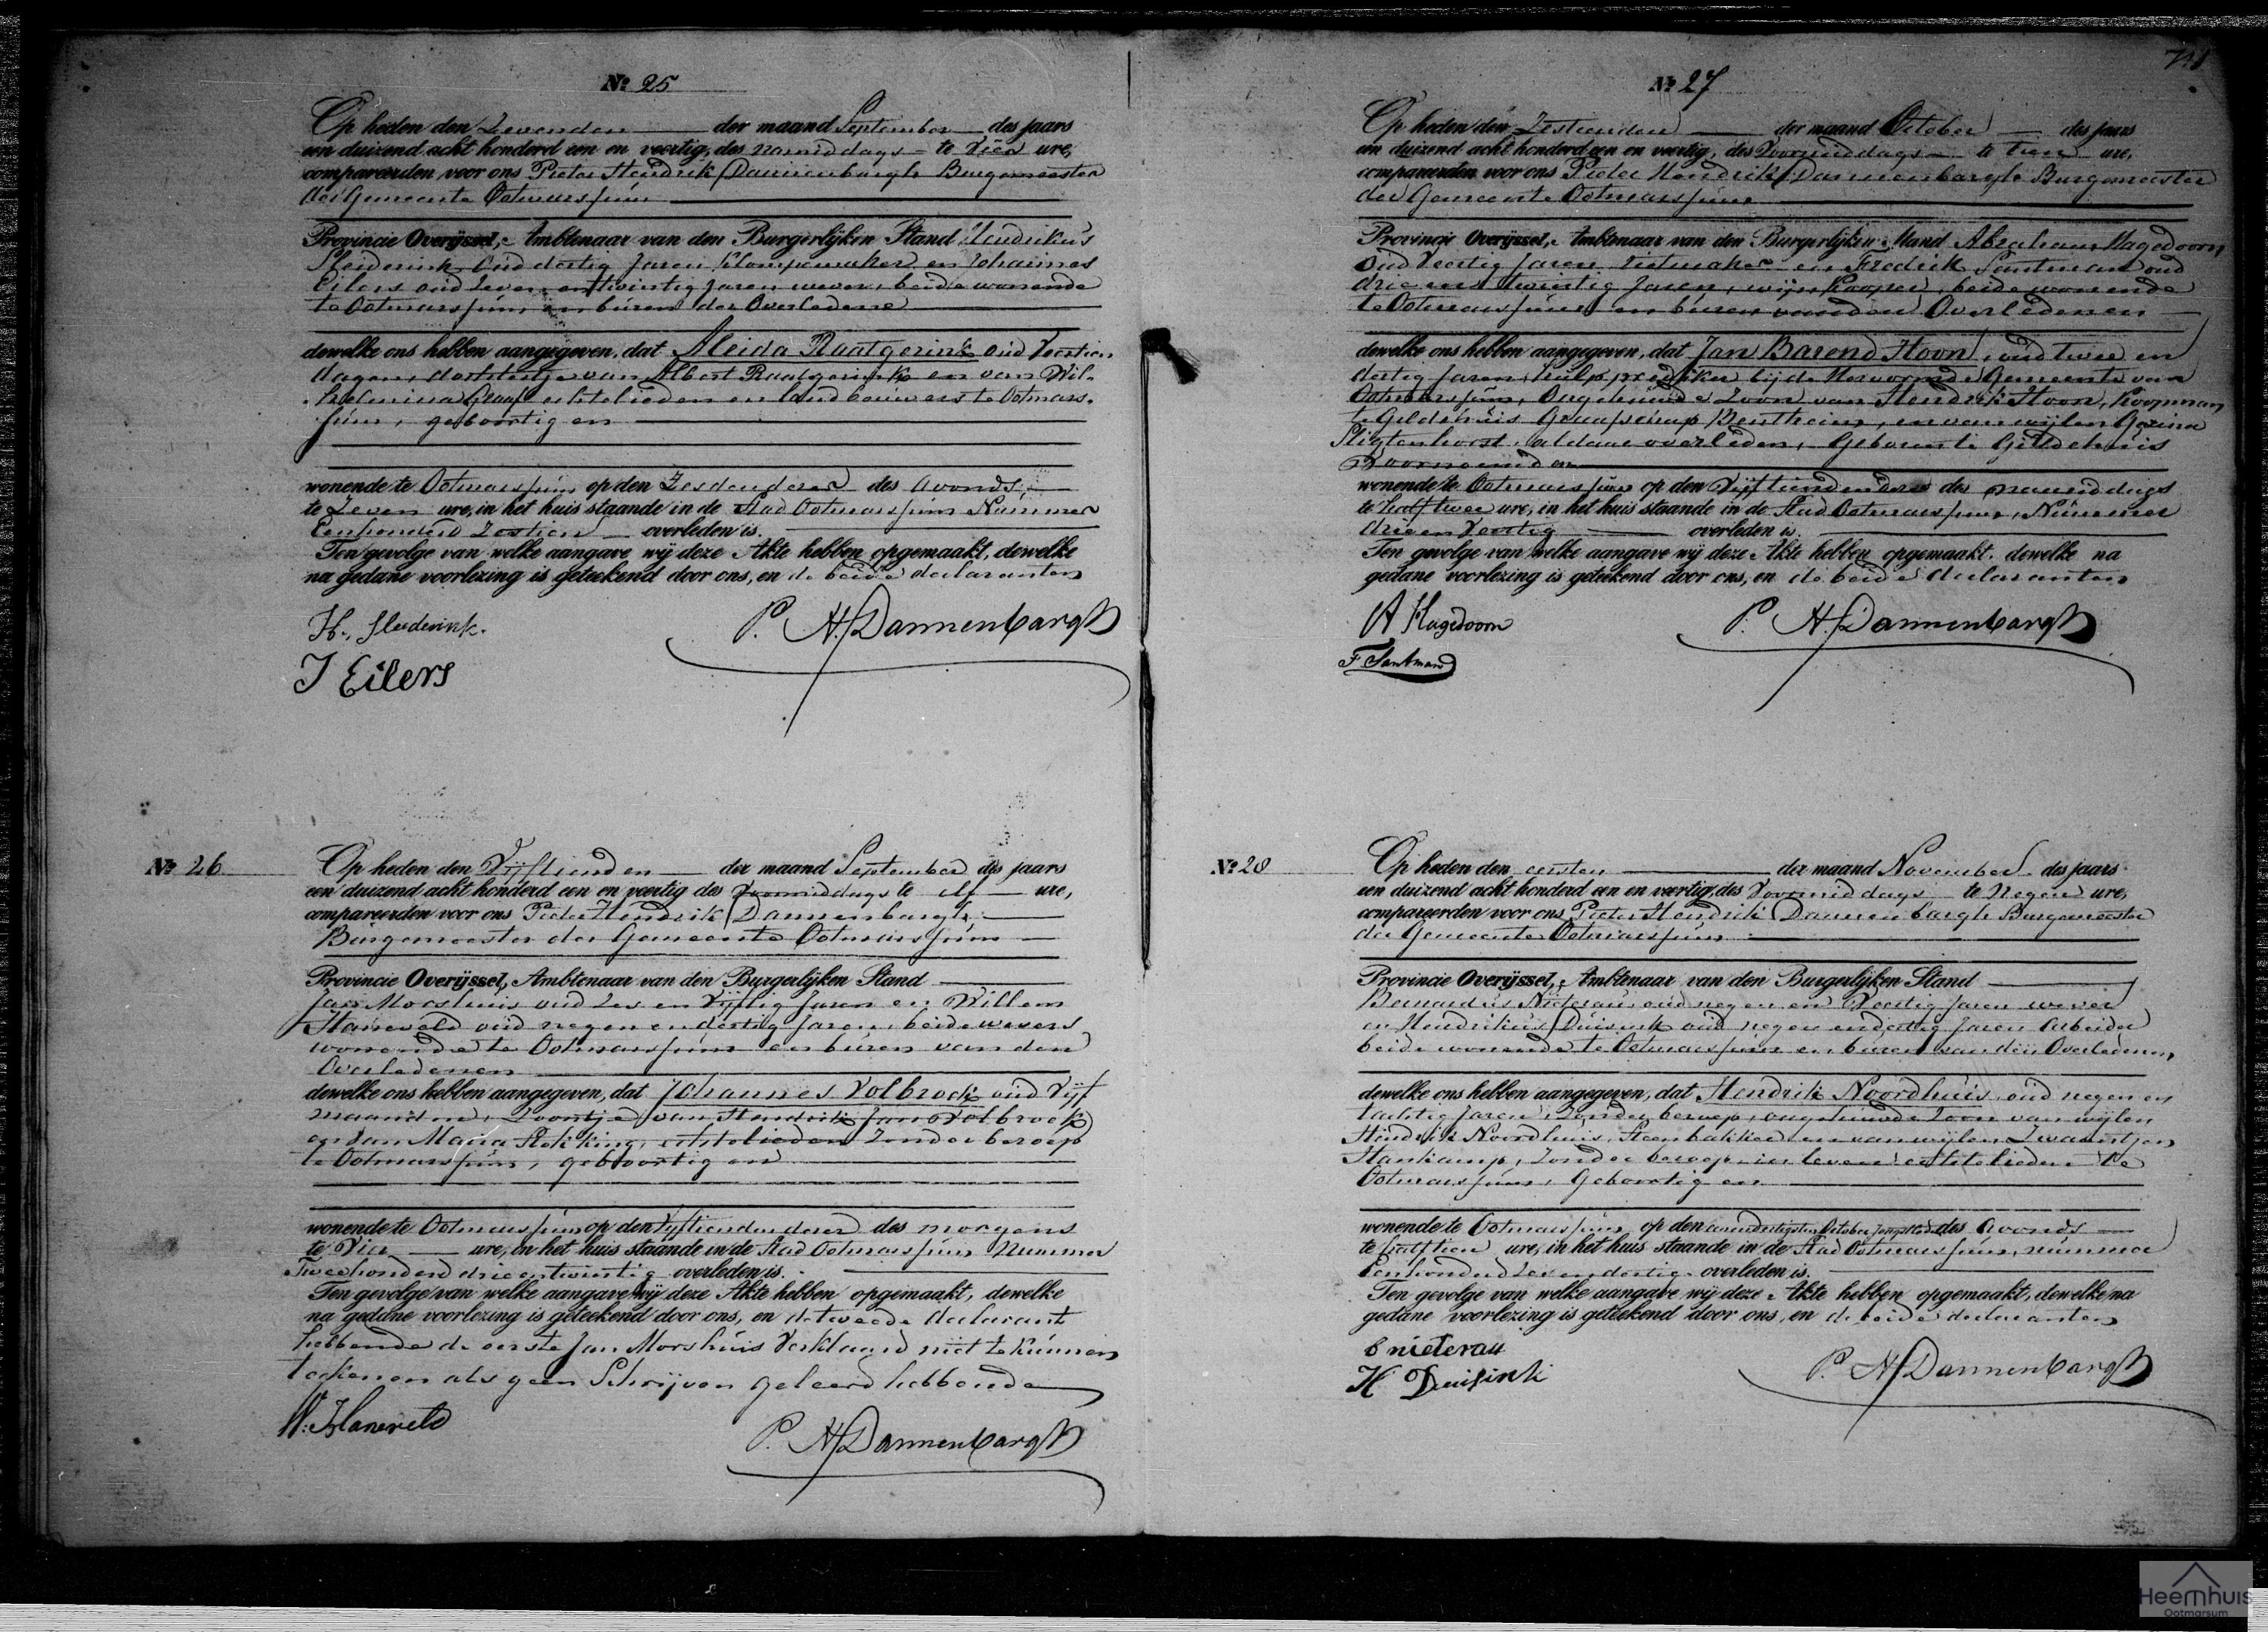 No 25
Op heden den Zevenden der maand September des jaars
een duizend acht honderd een en veertig, des namiddags te vier ure,
compareerden voor ons Pieter Hendrik Dannenbargh Burgemeester
der Gemeente Ootmarssum
Provincie Overijssel, Ambtenaar van den Burgerlijken Stand Hendrikus
oud dertig Jaren Klompemaker en Johannes
Eilers oud Zeven en twintig Jaren wever, beide wonende
te Ootmarssum en buren der Overledene
dewelke ons hebben aangegeven, dat Aleida Raatgerink oud Veertien
dagen, dochtertje van Albert Raatgerink en van Wil-
helmina Graaf echtelieden en landbouwers te Ootmars-
sum, geboortig en
wonende te Ootmarssum op den Zesden dezer des avonds
te Zeven ure, in het huis staande in de Stad Ootmarssum Nummer
Eenhonderd Zestien overleden is.
Ten gevolge van welke aangave wij deze Akte hebben opgemaakt, dewelke
na gedane voorlezing is geteekend door ons, en de beide declaranten
P. H. Dannenbargh
J Eilers
No 26
Op heden den Vijftienden der maand September des jaars
een duizend acht honderd een en veertig des voormiddags te elf ure,
compareerden voor ons Pieter Hendrik Dannenbargh
Burgemeester der Gemeente Ootmarssum
Provincie Overijssel, Ambtenaar van den Burgerlijken Stand
Jan Morshuis oud Zes en Vijftig Jaren en Willem
oud negen en dertig Jaren, beide wevers
wonende te Ootmarssum en buren van den
Overledenen
dewelke ons hebben aangegeven, dat Johannes Volbroek oud Vijf
maanden, Zoontje van Hendrik Jan Volbroek
en van Maria echtelieden zonder beroep
te Ootmarssum, geboortig en
wonende te Ootmarssum op den Vijftienden dezer des morgens
te Vier ure, in het huis staande in de Stad Ootmarssum Nummer
Tweehonderd drieentwintig overleden is.
Ten gevolge van welke aangave wij deze Akte hebben opgemaakt, dewelke
na gedane voorlezing is geteekend door ons, en de tweede declarant
hebbende de eerste Jan Morshuis Verklaard niet te kunnen
teekenen als geen Schrijven geleerd hebbende
P. H. Dannenbargh
No 27
Op heden den Zestienden der maand October des jaars
een duizend acht honderd een en veertig, des Voormiddags te tien ure,
compareerden voor ons Pieter Hendrik Dannenbargh Burgemeester
der Gemeente Ootmarssum
Provincie Overijssel, Ambtenaar van den Burgerlijken Stand Abraham Hagedoorn
oud Veertig Jaren rietmaker en Fredrik Santman oud
drie en twintig Jaren, wijnkooper, beide wonende
te Ootmarssum en buren van den Overledenen
dewelke ons hebben aangegeven, dat Jan Barend Hoon, oud twee en
dertig Jaren, hulpprediker bij de Hervormde Gemeente van
Ootmarssum, Ongehuwde Zoon van Hendrik Hoon, Koopman
te Gildehuis Graafschap Bentheim, en van wijlen Gesina
aldaar overleden, Geboren te Gildehuis
Voornoemd en
wonende te Ootmarssum op den Vijftienden dezer des namiddags
te half twee ure, in het huis staande in de Stad Ootmarssum, Nummer
drie en Veertig overleden is.
Ten gevolge van welke aangave wij deze Akte hebben opgemaakt, dewelke na
gedane voorlezing is geteekend door ons, en de beide declaranten
A Hagedoorn P. H. Dannenbargh
F Santman
No 28
Op heden den eersten der maand November des jaars
een duizend acht honderd een en veertig, des Voormiddags te Negen ure,
compareerden voor ons Pieter Hendrik Dannenbargh Burgemeester
der Gemeente Ootmarssum
Provincie Overijssel, Ambtenaar van den Burgerlijken Stand
Bernardus Nieterau, oud negen en Veertig Jaren wever
en Hendrikus Duisink oud negen en dertig Jaren Arbeider
beide wonende te Ootmarssum en buren van den Overledenen,
dewelke ons hebben aangegeven, dat Hendrik Noordhuis, oud negen en
tachtig Jaren, Zonder beroep, ongehuwde Zoon van wijlen
Hendrik Noordhuis, Steenbakker en van wijlen Zwaantjen
Zonder beroep in leven echtelieden te
Ootmarssum, Geboortig en
wonende te Ootmarssum op den eenendertigsten October Jongstleden des Avonds
te half tien ure, in het huis staande in de Stad Ootmarssum, nummer
Eenhonderd Zevendertig overleden is.
Ten gevolge van welke aangave wij deze Akte hebben opgemaakt, dewelke na
gedane voorlezing is geteekend door ons, en de beide declaranten
B nieterau
H Duisink P. H. Dannenbargh
Heemhuis
Ootmarsum